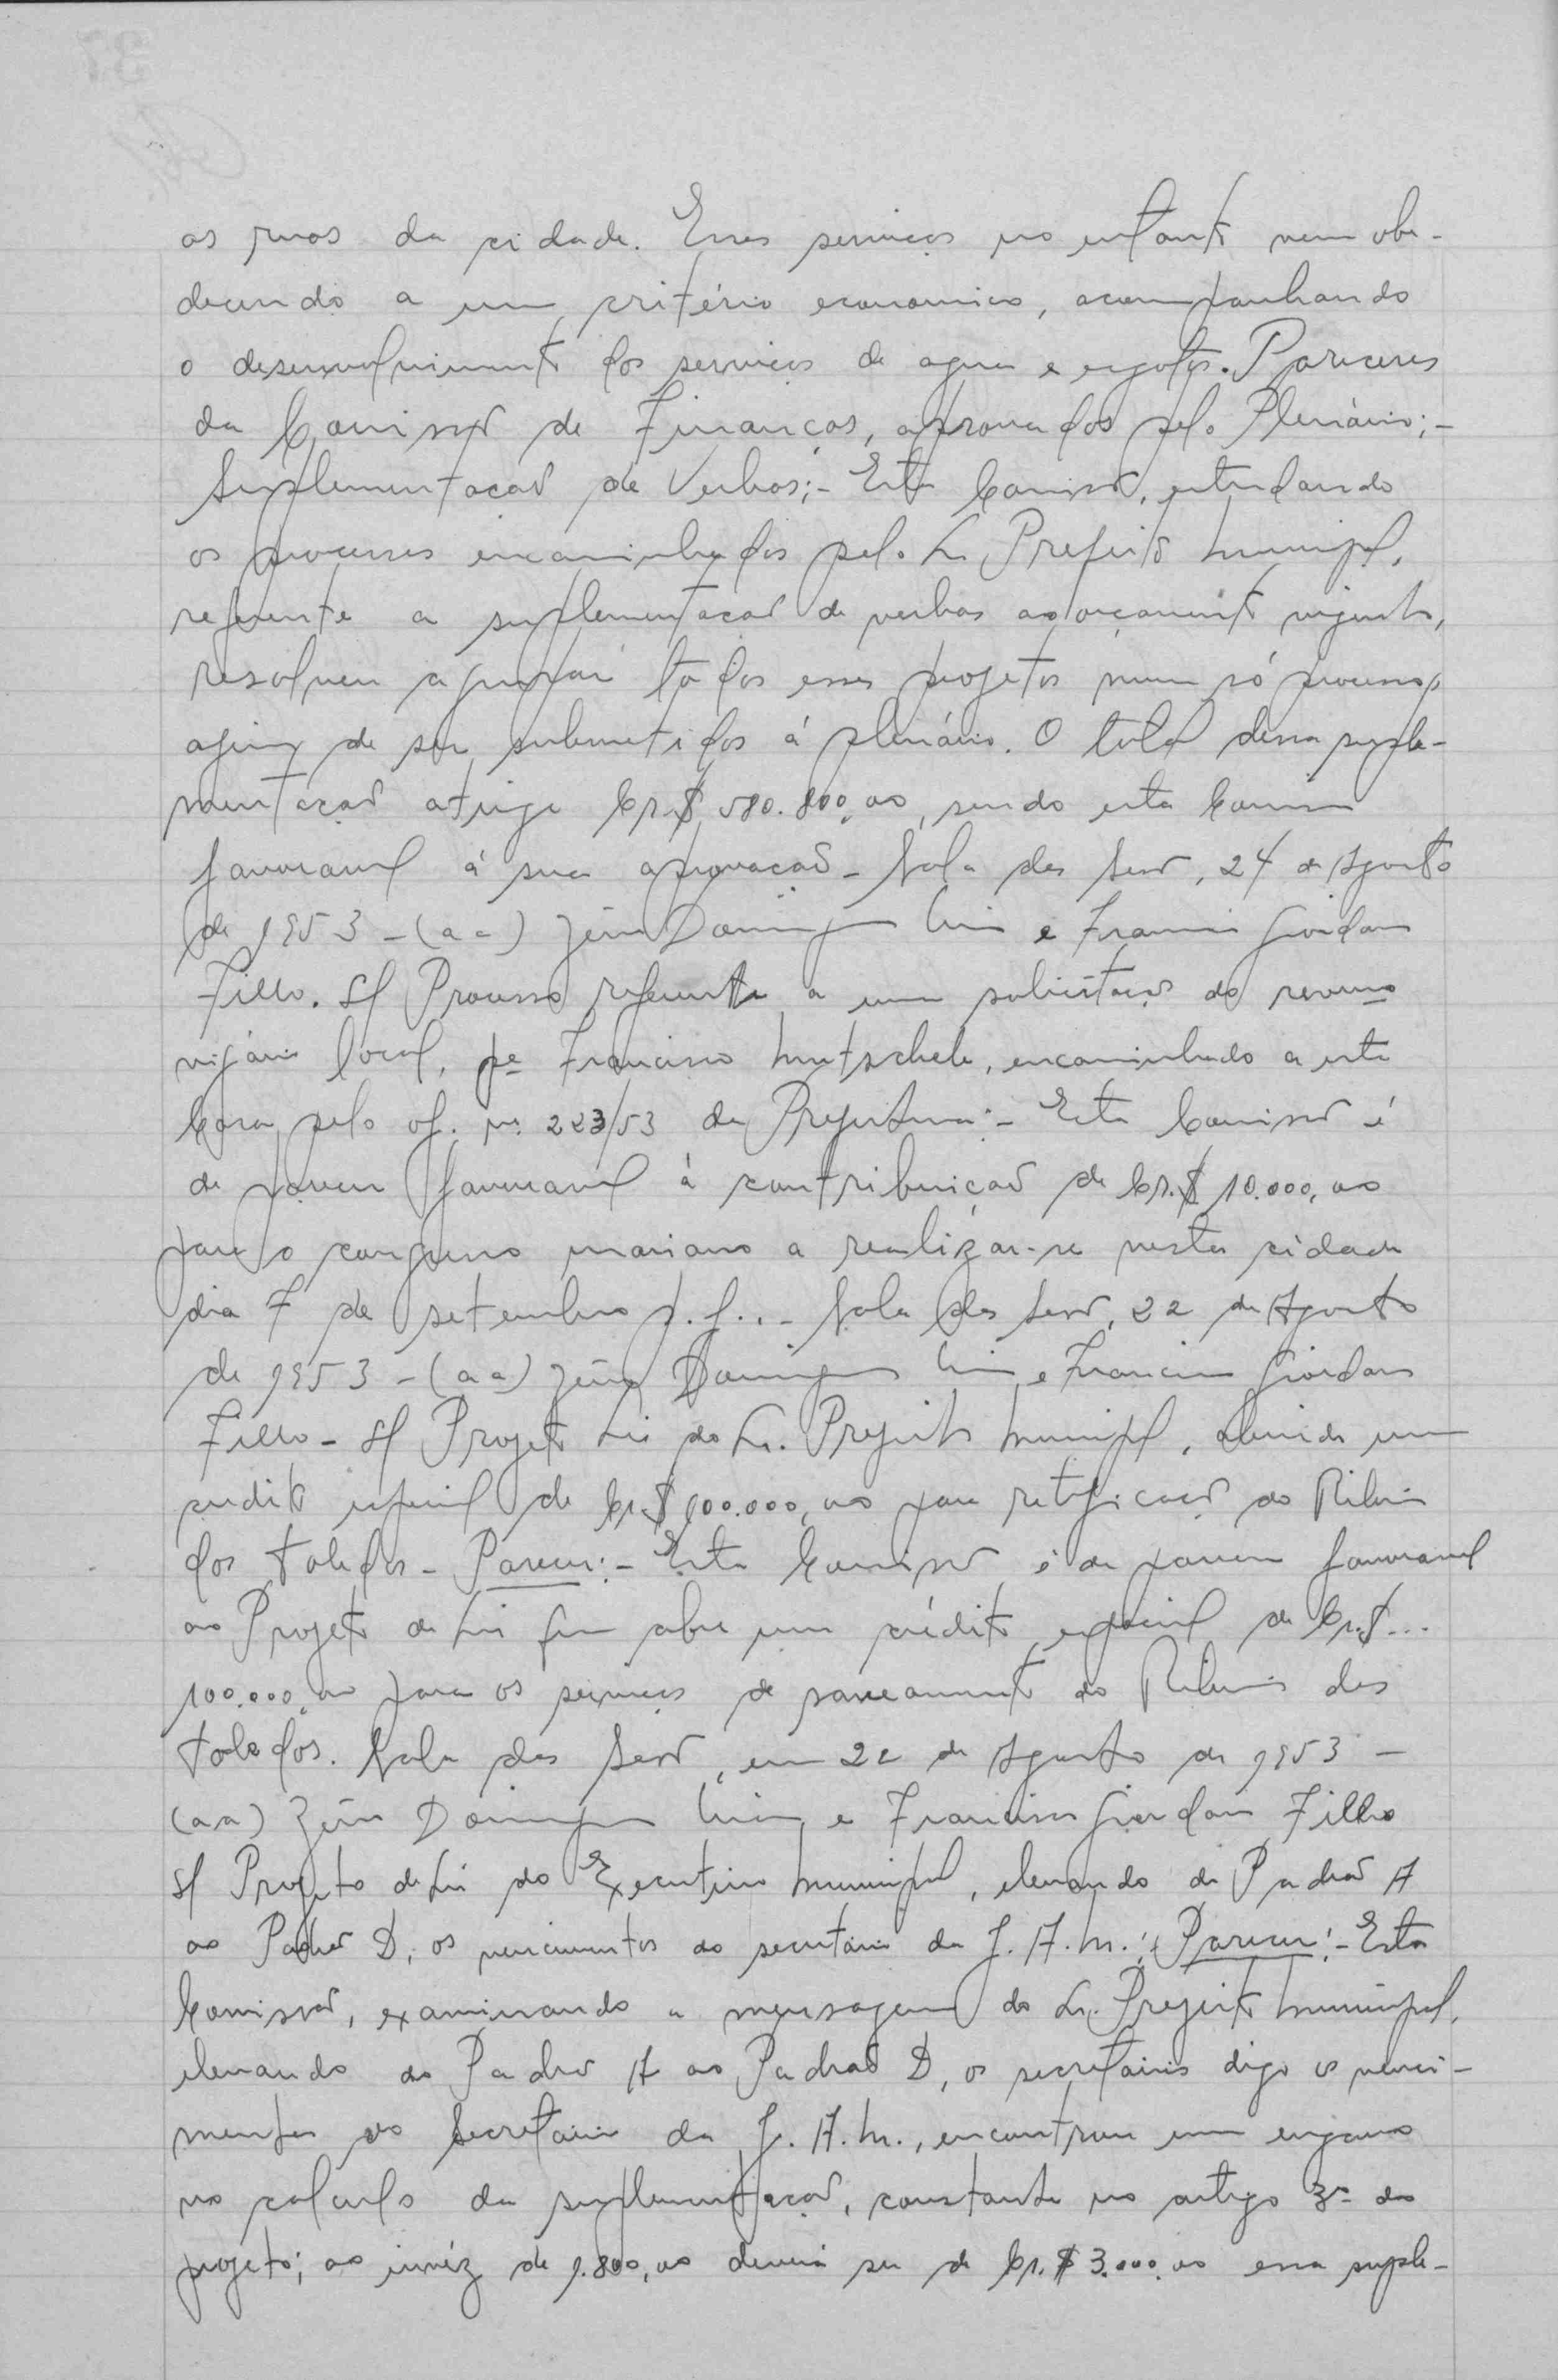 as ruas da cidade. Esses serviços no entanto vem obe-
decendo a um critério economico, acompanhando
o desenvolvimento dos serviços de agua e esgotos. Pareceres
da Comissão de Finanças, aprovados pelo Plenário;-
Suplementação de Verbas;- Esta Comissão, estudando
os processos encaminhados pelo Sr. Prefeito Municipal,
referente a suplementação de verbas ao orçamento vigente,
resolveu agrupar todos esses projetos num só processo,
afim de ser submetidos á plenário. O total dessa suple-
mentação atinge Cr.$ 580.800,00, sendo esta Comissão
favoravel á sua aprovação - Sala das Sessões, 24 de Agosto
de 1953 - (aa) Domingues e Francisco Giordano
Filho. S/ Processo referente a uma solicitação do revmo
vigário local, Pe Francisco Mutschele, encaminhado a esta
Casa pelo of. nº 223/53 da Prefeitura:- Esta Comissão é
de parecer favoravel á contribuição de Cr.$ 10.000,00
para o congresso mariano a realizar-se nesta cidade
dia 7 de setembro p.f.. - Sala das Sessões, 22 de Agosto
de 1953 - (aa) Domingues e Francisco Giordano
Filho - S/ Projeto Lei do Sr. Prefeito Municipal, abrindo um
credito especial de Cr.$ 100.000,00 para retificação do Ribeirão
dos Toledos - Parecer:- Esta Comissão é de parecer favoravel
ao Projeto de Lei que abre um crédito especial de Cr.$...
100.000,00 para os serviços de saneamento do Ribeirão dos
Toledos. Sala das Sessões, em 22 de Agosto de 1953 -
(aa) Domingues e Francisco Giordano Filho
S/ Projeto de Lei do Executivo Municipal, elevando do Padrão A
ao Padrão D, os vencimentos do secretário da J. A. M.; Parecer:- Esta
Comissão, examinando a mensagem do Sr. Prefeito Municipal,
elevando do Padrão A ao Padrão D, os secretários digo os venci-
mentos do Secretario da J. A. M., encontrou um engano
no calculo da suplementação, constante no artigo 3º do
projeto; ao invéz de 1.800,00 deverá ser de Cr.$ 3.000,00 essa suple-